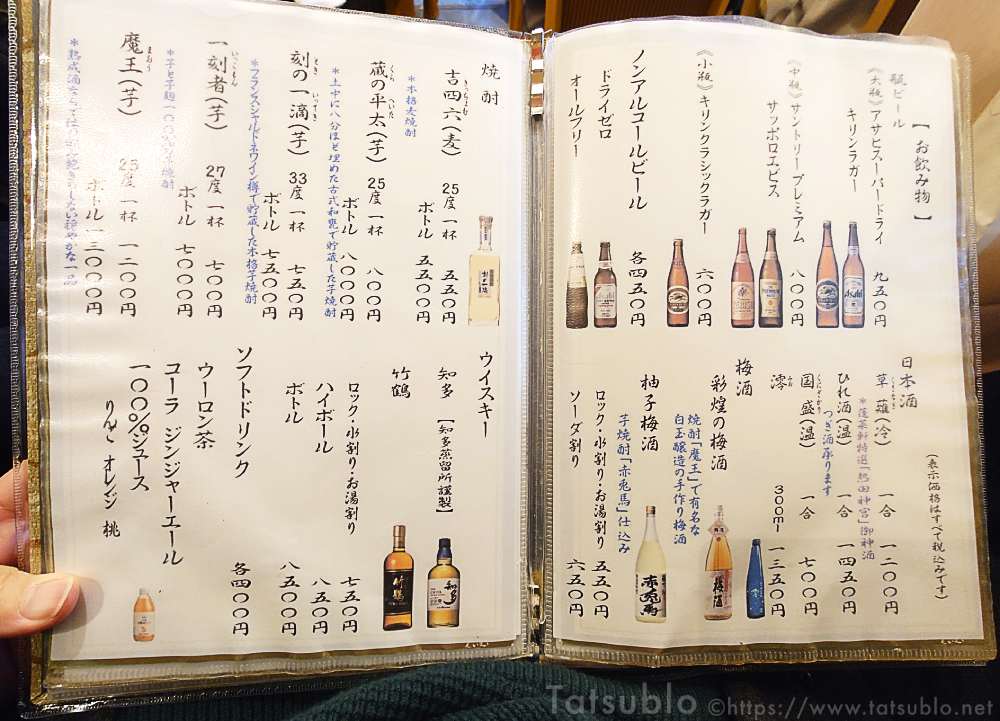 【お飲み物】
瓶ビール
《大瓶》アサヒスーパードライ
キリンラガー 九五〇円
《中瓶》サントリープレミアム
サッポロエビス 八〇〇円
《小瓶》キリンクラシックラガー 六〇〇円
ノンアルコールビール 各四五〇円
ドライゼロ
オールフリー
日本酒 (表示価格はすべて税込みです)
草薙(冷) 一合 一二〇〇円
*蓬莱軒特選「熱田神宮」御神酒
ひれ酒(温) 一合 一四五〇円
つぎ酒承ります
国盛(温) 一合 七〇〇円
澪 300ml 一三五〇円
梅酒
彩煌の梅酒
焼酎「魔王」で有名な
白玉醸造の手作り梅酒
柚子梅酒
芋焼酎「赤兎馬」仕込み
ロック・水割り・お湯割り 五五〇円
ソーダ割り 六五〇円
焼酎
吉四六(麦) 25度 一杯 五五〇円
ボトル 五五〇〇円
*本格麦焼酎
蔵の平太(芋) 25度 一杯 八〇〇円
ボトル 八〇〇〇円
*土中に八分ほど埋めた古式和甕で貯蔵した芋焼酎
刻の一滴(芋) 33度 一杯 七五〇円
ボトル 七五〇〇円
*フランスシャルドネワイン樽で貯蔵した本格芋焼酎
一刻者(芋) 27度 一杯 七〇〇円
ボトル 七〇〇〇円
*芋と芋麹一〇〇%の芋焼酎
魔王(芋) 25度 一杯 一二〇〇円
ボトル 一三〇〇〇円
ウイスキー
知多 【知多蒸留所謹製】
竹鶴
ロック・水割り・お湯割り 七五〇円
ハイボール 八五〇円
ボトル 八五〇〇円
ソフトドリンク 各四〇〇円
ウーロン茶
コーラ ジンジャーエール
一〇〇%ジュース
りんご オレンジ 桃
Tatsublo ©https://www.tatsublo.net